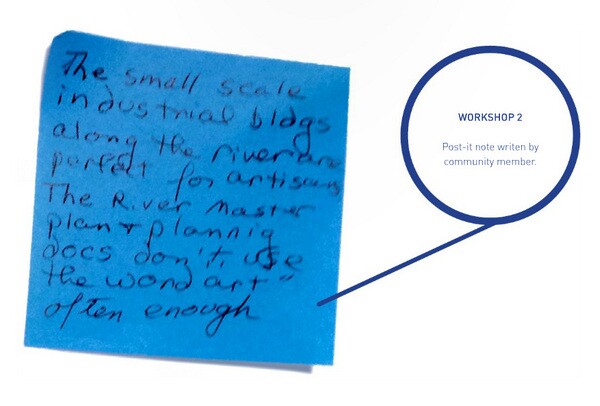 The small scale
industrial bldgs
along the river are
perfect for artisans
The River Master
plan + plannig
docs don't use
the word art"
often enough
WORKSHOP 2
Post-it note writen by
community member.